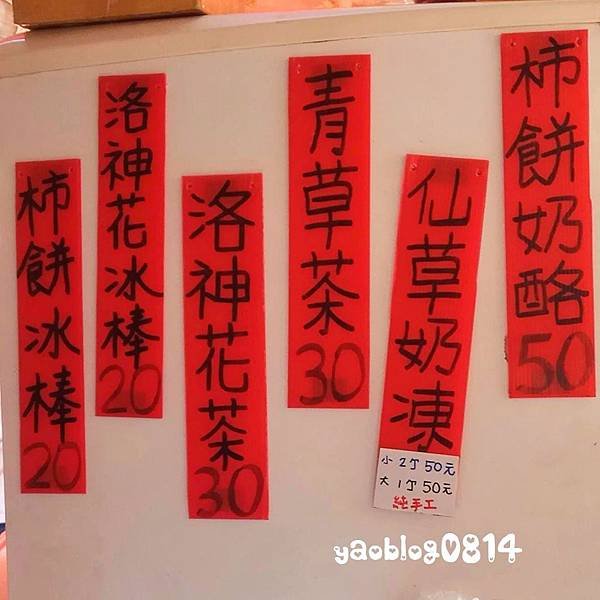 柿餅冰棒20
洛神花冰棒20
洛神花茶30
青草茶30
仙草奶凍
小2个50元
大1个50元
純手工
柿餅奶酪50
yaoblog0814